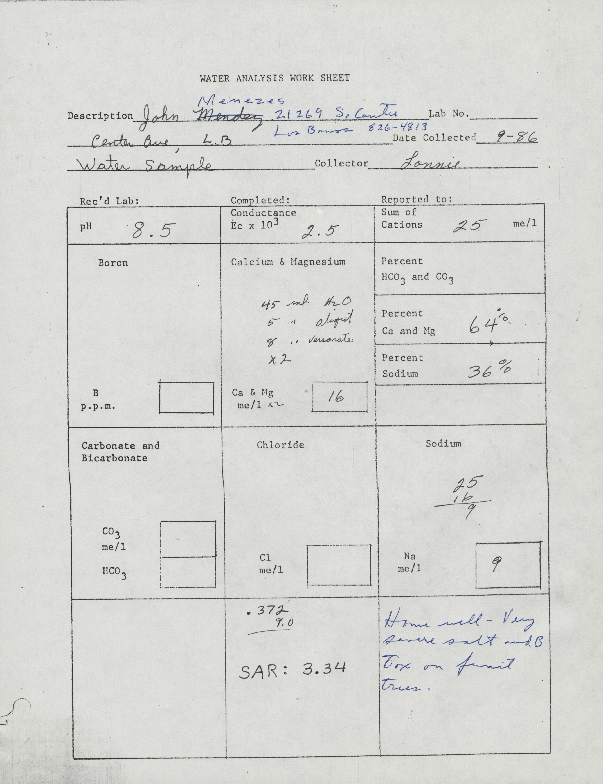 WATER ANALYSIS WORK SHEET
Menezes
Description John Mendez 21269 So Center Lab No.
Los Banos 826-4813
Center Ave, L.B Date Collected 9-86
Water Sample Collector Lonnie
Rec'd Lab: Completed: Reported to:
pH 8.5
Conductance
Ec x 10³ 2.5
Sum of
Cations 25 me/l
Boron
B
p.p.m.
Calcium & Magnesium
45 ml H2O
5 " aliquot
8 " versenate
x2
Ca & Mg
me/l x2 16
Percent
HCO3 and CO3
Percent
Ca and Mg 64%
Percent
Sodium 36%
Carbonate and
Bicarbonate
CO3
me/l
HCO3
Chloride
Cl
me/l
Sodium
25
16
9
Na
me/l 9
.372
9.0
SAR: 3.34
Home well - Very
severe salt and B
Tox on fruit
trees.